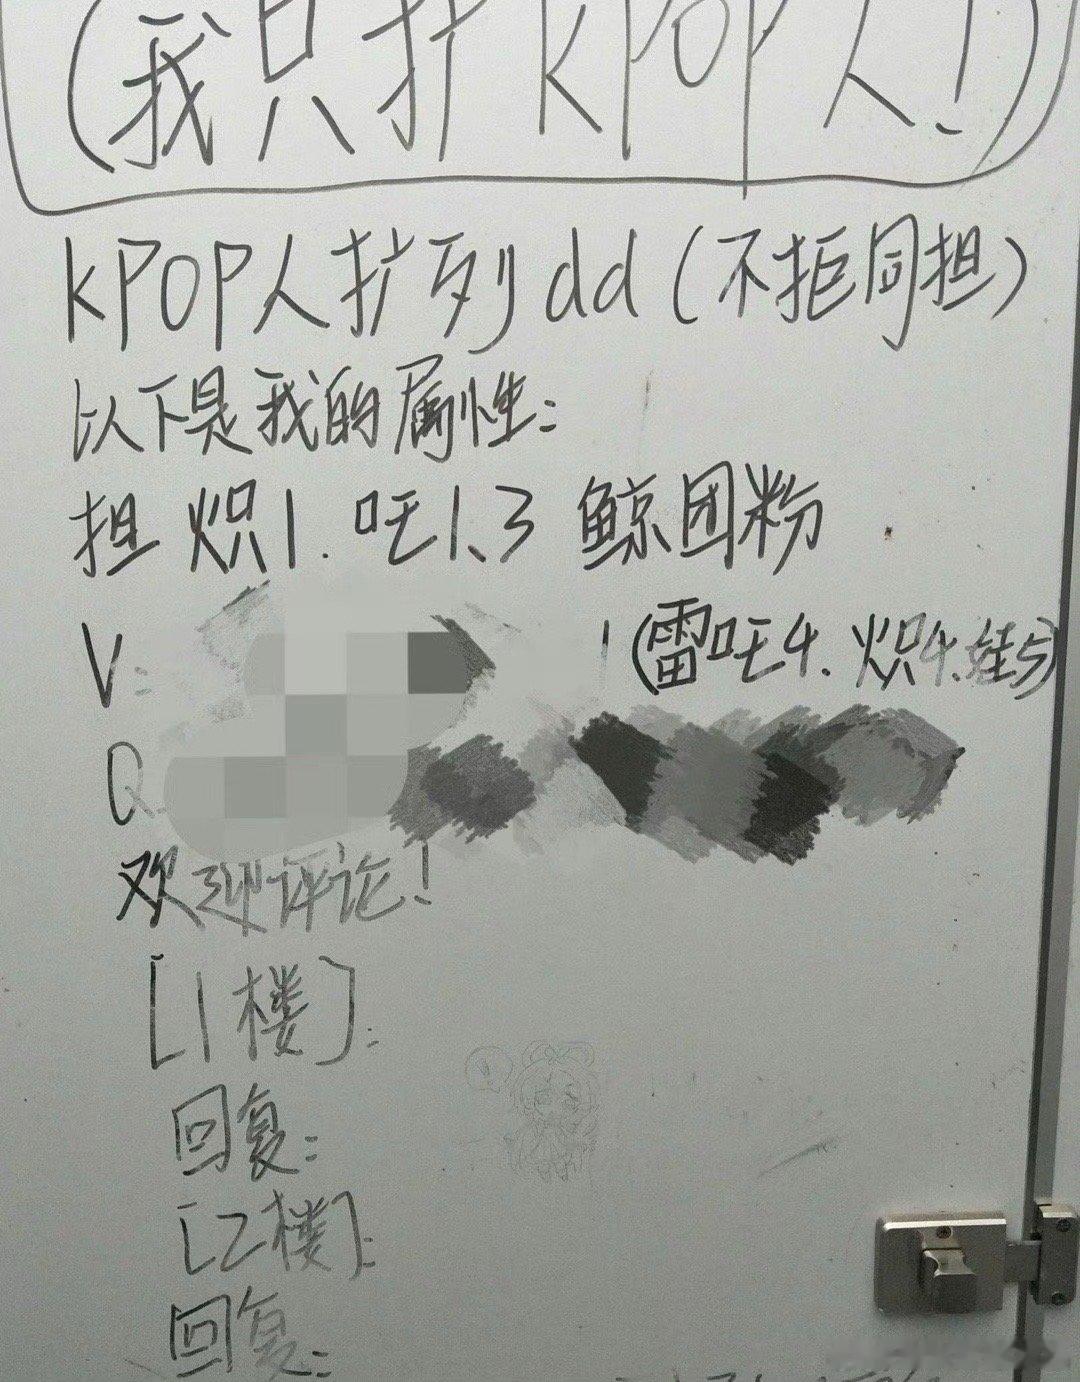 (我只扩kpop人!)
kpop人扩列dd(不拒同担)
以下是我的属性:
担 炽1.吒1、3 鲸团粉
V:
(雷吒4.炽4.娃5)
Q
欢迎评论!
[1楼]:
回复:
[2楼]:
回复: